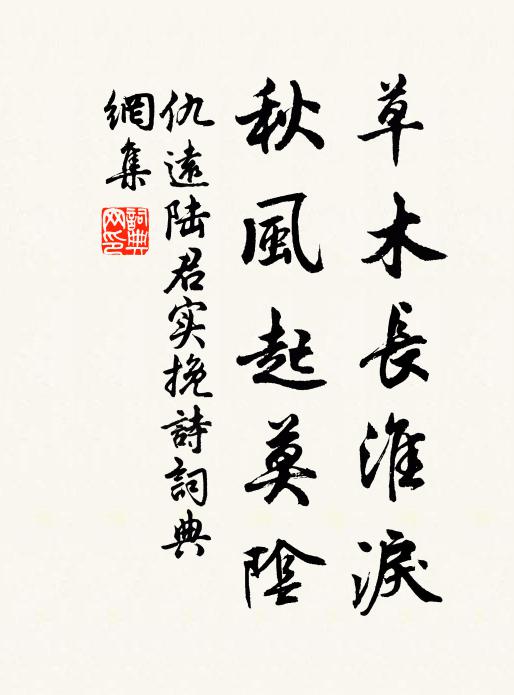 草木長淮淚
秋風起莫陰
仇遠陆君实挽詩詞典
網集
詞典網印